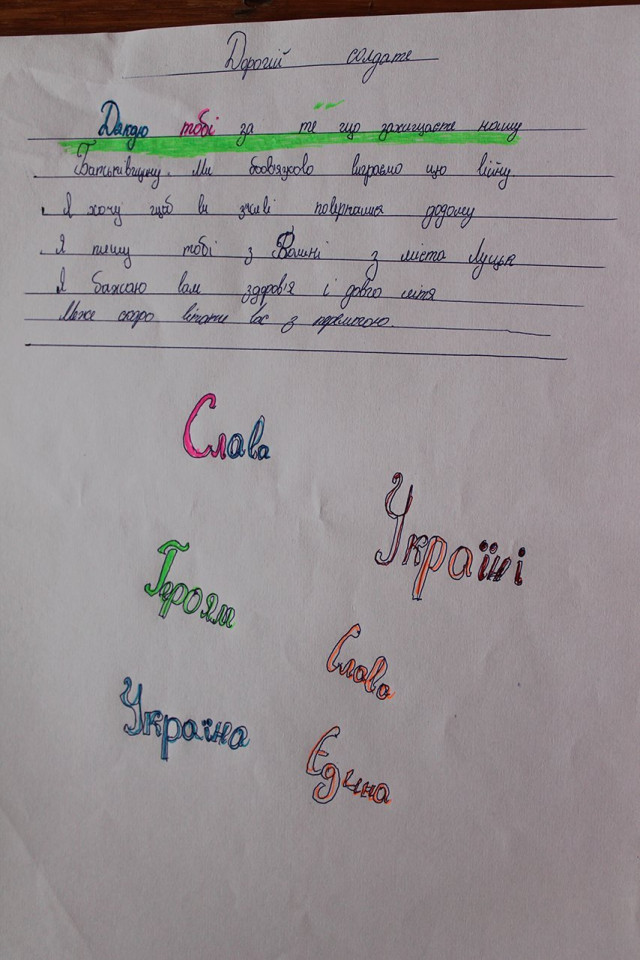 Дорогий солдате
Дякую тобі за те що захищаєте нашу
Батьківщину. Ми обовязково виграємо цю війну
Я хочу щоб ви живі повернулися додому
Я пишу тобі з Волині з міста Луцьк
Я бажаю вам здоров'я і довго ліття
Може скоро вітати вас з перемогою.
Слава
Україні
Героям
Слава
Україна
Єдина